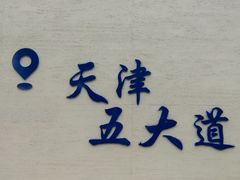 天津
五大道